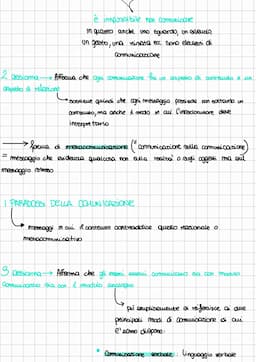 è impossibile non comunicare
in quanto anche uno sguardo, un silenzio
un gesto, una risata ecc. sono elementi di
comunicazione
2 assioma → Afferma che ogni comunicazione ha un aspetto di contenuto e un
aspetto di relazione
sostiene quindi che ogni messaggio possiede non soltanto un
contenuto, ma anche il modo in cui l'interlocutore deve
interpretarlo
→ forma di metacomunicazione ("comunicazione sulla comunicazione)
= messaggio che evidenzia qualcosa non sulla realtà o sugli oggetti ma sul
messaggio stesso
I PARADOSSI DELLA COMUNICAZIONE
messaggi in cui il contenuto contraddice quello relazionale o
metacomunicativo
3 assioma → Afferma che gli esseri umani comunicano sia con modulo
comunicativo sia con il modulo analogico
più semplicemente si riferisce ai due
principali modi di comunicazione di cui
l'uomo dispone:
• Comunicazione verbale: linguaggio verbale